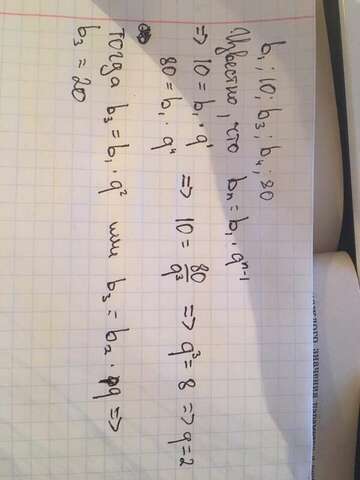 b₁; 10; b₃; b₄; 80
Известно, что bn = b₁ · qⁿ⁻¹
=> 10 = b₁ · q¹
80 = b₁ · q⁴ => 10 = 80/q³ => q³ = 8 => q = 2
Тогда b₃ = b₁ · q² или b₃ = b₂ · q =>
b₃ = 20